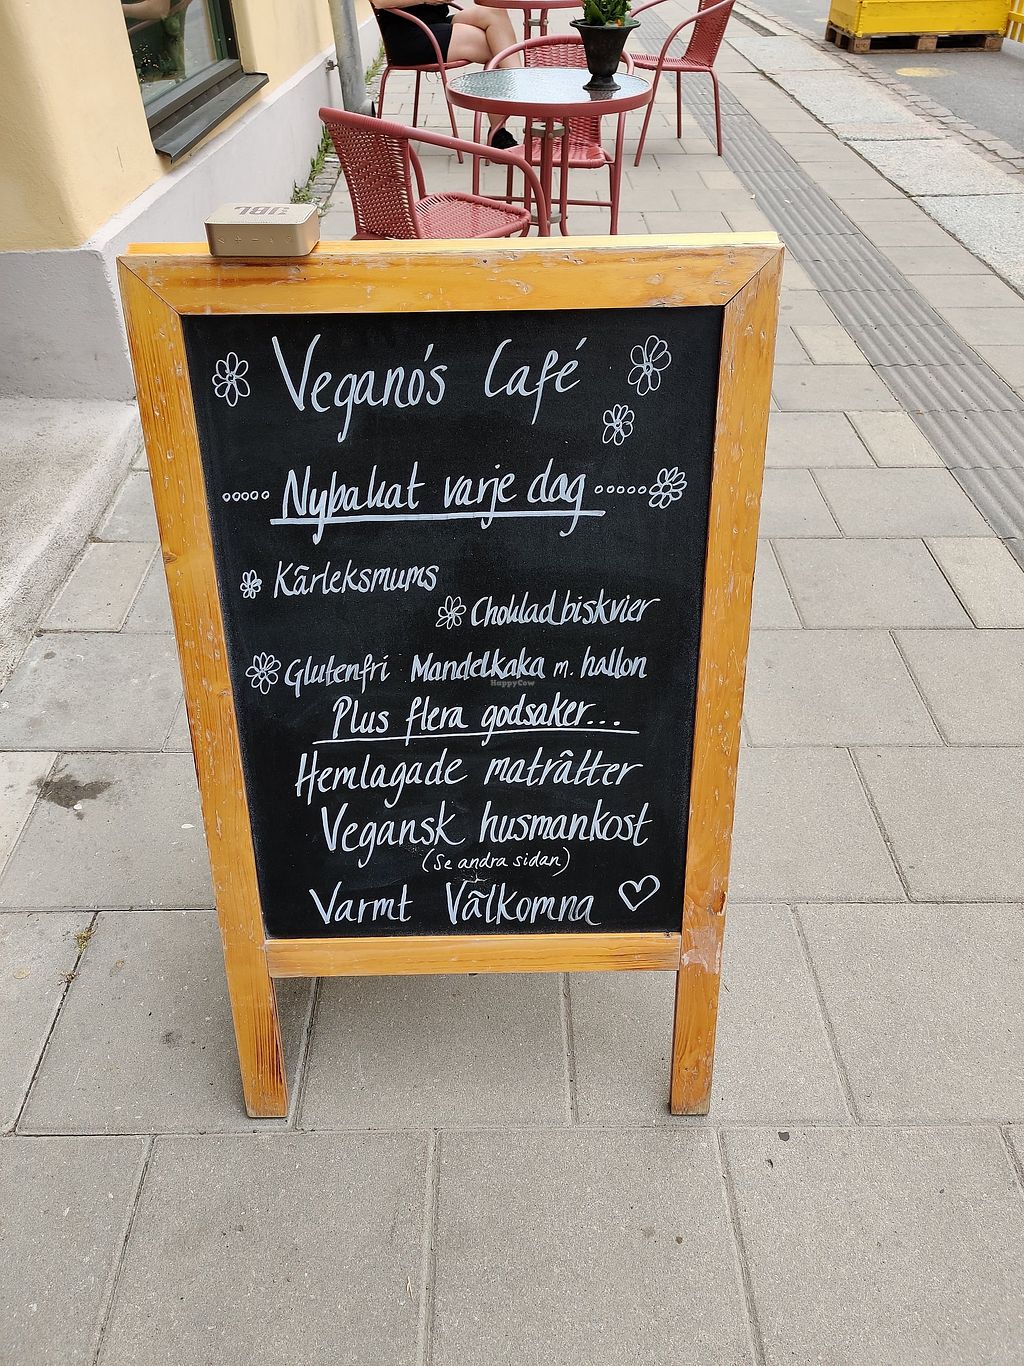 JBL
Veganó's Café
Nybakat varje dag
Kärleksmums
Choklad biskvier
Glutenfri Mandelkaka m. hallon
HappyCow
Plus flera godsaker...
Hemlagade maträtter
Vegansk husmankost
(Se andra sidan)
Varmt Välkomna